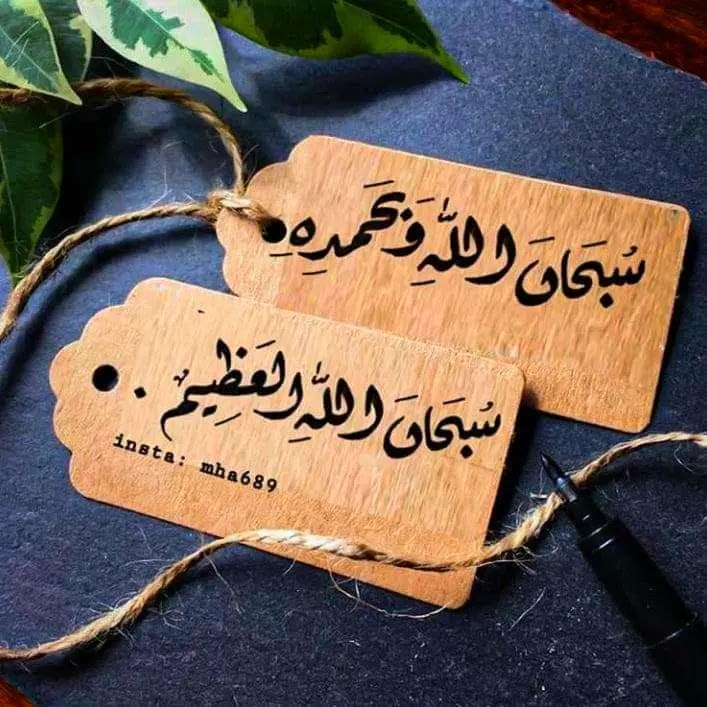 سُبحَانَ اللّٰهِ وَبِحَمدِهِ
سُبحَانَ اللّٰهِ العَظِيم .
insta: mha689